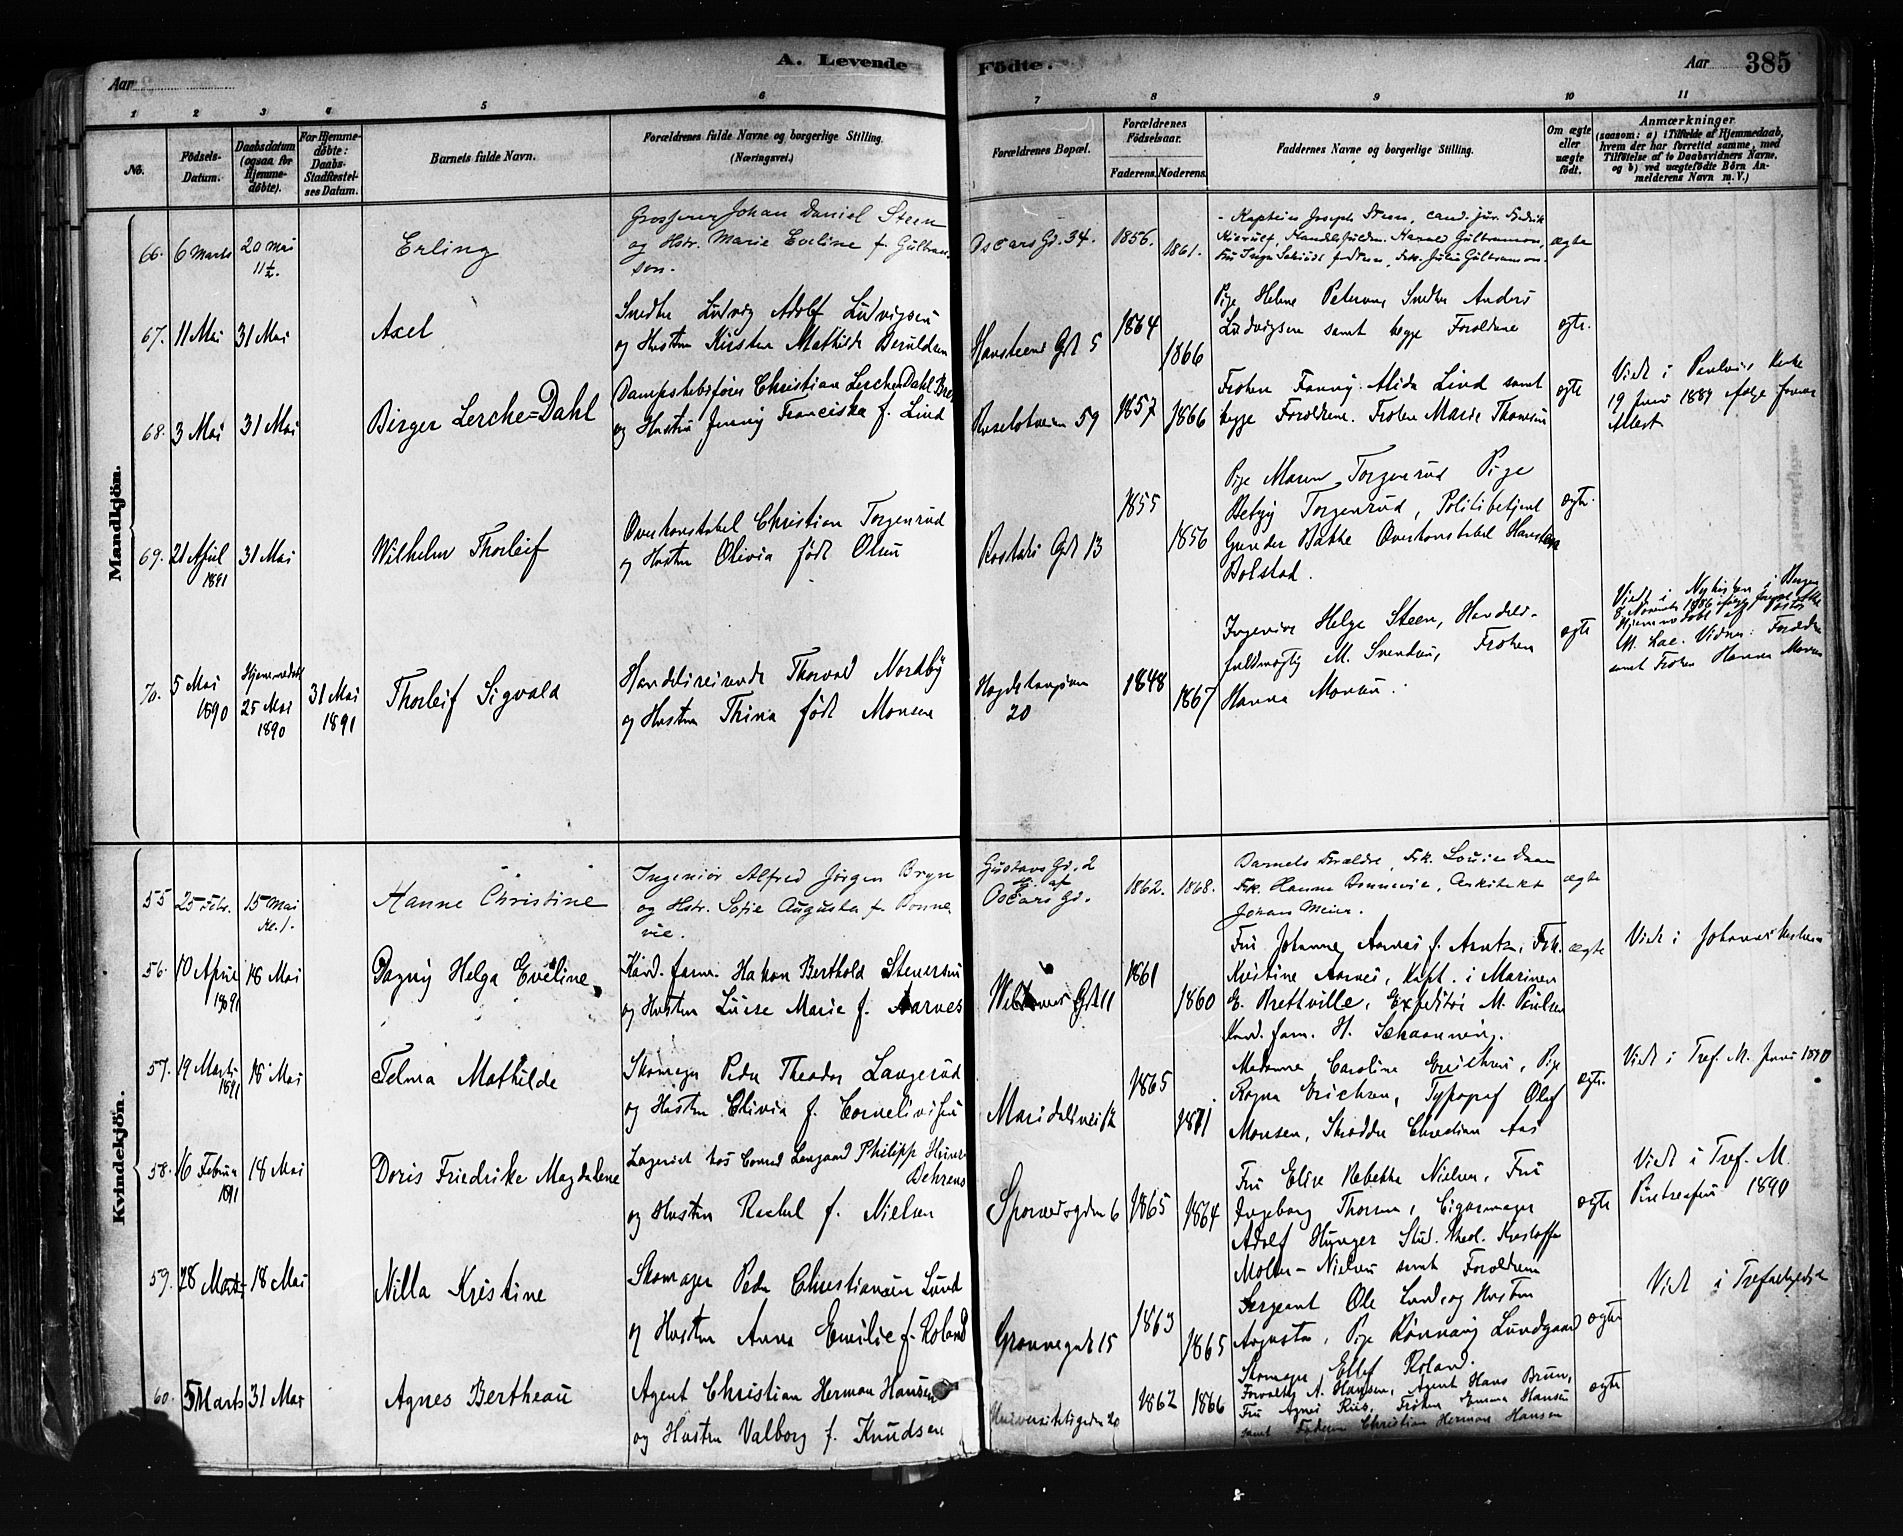 Aar
A. Levende
Fødte.
Aar 385
1 2 3 4 5 6 7 8 9 10 11
No.
Fødsels-
Datum.
Daabsdatum
(ogsaa for
Hjemme-
døbte).
For Hjemme-
døbte:
Daabs-
Stadfæstel-
ses Datum.
Barnets fulde Navn.
Forældrenes fulde Navne og borgerlige Stilling.
(Næringsvei.)
Forældrenes Bopæl.
Forældrenes
Fødselsaar.
Faderens. Moderens.
Faddernes Navne og borgerlige Stilling.
Om ægte
eller
uægte
født.
Anmærkninger
(saasom: a) i Tilfælde af Hjemmedaab,
hvem der har forrettet samme, med
Tilføielse af to Daabsvidners Navne,
og b) ved uægtefødte Børn An-
melderens Navn m. V.)
Mandkjön.
66. 6 Marts 20 Mai
11½.
Erling
Grosserer Johan Daniel Steen
og Hstr. Marie Eveline f. Gulbran-
sen.
Oscars Gd. 34. 1856. 1861.
Kaptein Joseph Steen, cand. jur. Fredrik
ægte
67. 11 Mai 31 Mai
Axel
Snedker Ludvig Adolf Ludvigsen
og Hustru Kirsten Mathilde
Hansteens Gd 5 1864 1866
Pige Helene Petersen, Snedker Anders
Ludvigsen samt begge Forældrene
ægte.
68. 3 Mai 31 Mai
Birger Lerche=Dahl
Dampskibsfører Christian Lerche Dahl
og Hustru Jenny Franciska f. Lind
59 1857 1866
Frøken Fanny Alida Lind samt
begge Forældrene. Frøken Marie Thomsen
ægte
Viet i Paulus Kirke
19 Juni 1889 ifølge
Attest
69. 21 April
1891
31 Mai
Wilhelm Thorleif
Overkonstabel Christian Torgenrud
og Hustru Olivia født Olsen
Gdt 13 1855 1856
Pige Maren Torgenrud Pige
Betzy Torgenrud, Politibetjent
Gunder Bakke Overkonstabel
Bolstad.
ægte.
70. 5 Mai
1890
Hjemmedøbt
25 Mai
1890
31 Mai
1891
Thorleif Sigvald
Handelsreisende Thorvald Nordby
og Hustru Thina født Monsen
20 1848 1867
Ingeniør Helge Steen, Handels-
fuldmægtig M. Svendsen, Frøken
Hanna Monsen.
ægte
Viet i Nykirken i Bergen
8 November 1886
Hjemmedøbt af Pastor
M. Lae. Vidner: Forældre
samt Frøken Hanna Monsen
Kvindekjön.
55 25 Febr. 15 Mai
Kl. 1.
Hanne Christine
Ingeniör Alfred Jörgen Bryn
og Hstr. Sofie Augusta f. Bonne-
vie.
Gustavs Gd. 2
Oscars Gd.
1862. 1868.
Barnets Forældre, Frk. Louise Daae
Frk. Hanna Bonnevie, Arkitekt
Johan Meier.
ægte
56. 10 April
1891
18 Mai
Dagny Helga Eveline
Kand. farm. Hakon Berthold Stenersen
og Hustru Luise Marie f. Aarnes
11 1861 1860
Fru Johanne Aarnes f. Arntz, Frk.
Kristine Aarnes, Kapt. i Marinen
E. Brettville, Expeditør M. Paulsen
Kand. farm. H. Schaanning.
ægte
Viet i Johannes Kirken
57. 19 Marts
1891
18 Mai
Telma Mathilde
Skomager Peder Theodor Langerud
og Hustru Olivia f. Corneliussen
Maridalsvei 12 1865 1871
Madame Caroline Erichsen, Pige
Ragna Erichsen, Typograf Olaf
Monsen, Skrædder Christian Aas
ægte.
Viet i Tref. M. Juni 1890
58. 16 Februar
1891
18 Mai
Doris Friedrike Magdalene
Lagerist hos Conrad Langaard Philipp Heinr.
Behrens
og Hustru Rachel f. Nielsen
Sporveisgaden 6 1865 1864
Fru Elise Rebekka Nielsen, Fru
Ingeborg Thorsen, Cigarmager
Adolf Hunger Stud. theol. Kristoffer
Molbe-Nielsen samt Forældrene
ægte
Viet i Tref. M.
1890
59. 28 Marts 18 Mai
Nilla Kristine
Skomager Peder Christiansen Lund
og Hustru Anna Emilie f. Roland
Grønnegade 15 1863 1865
Sergeant Ole Lund og Hustru
Augusta, Pige Rønnaug Lundgaard
Skomager Ellef Roland.
ægte
Viet i
60. 5 Marts 31 Mai
Agnes Bertheau
Agent Christian Herman Hansen
og Hustru Valborg f. Knudsen
Universitetsgaden 20 1862 1866
Forvalter N. Hansen, Agent Hans Brun,
Fru Agnes Riis, Frøken Emma Hansen
samt Faderen Christian Herman Hansen
ægte